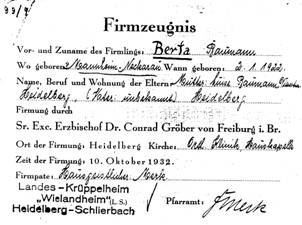 99/7
Firmzeugnis
Vor- und Zuname des Firmlings: Berta Baumann
Wo geboren? Mannheim-Neckarau Wann geboren: 2.1.1922.
Name, Beruf und Wohnung der Eltern: Mutter: Baumann
Heidelberg, (Vater unbekannt) Heidelberg
Firmung durch
Sr. Exc. Erzbischof Dr. Conrad Gröber von Freiburg i. Br.
Ort der Firmung: Heidelberg Kirche: Orth. Klinik, Hauskapelle
Zeit der Firmung: 10. Oktober 1932.
Firmpate: Hausgeistlicher Merk
Landes-Krüppelheim
„Wielandheim" (L.S.) Pfarramt: Merk
Heidelberg-Schlierbach